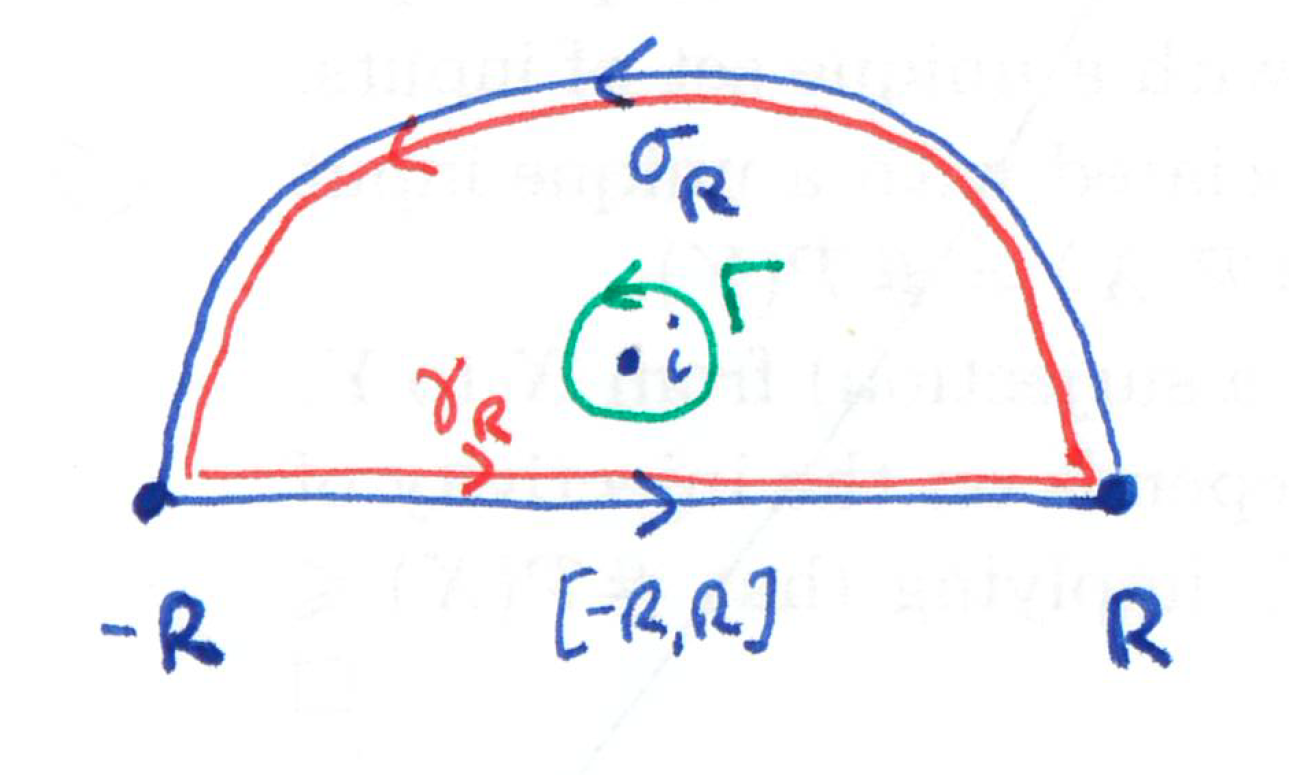 σ_R
Γ
i
γ_R
[-R,R]
-R
R